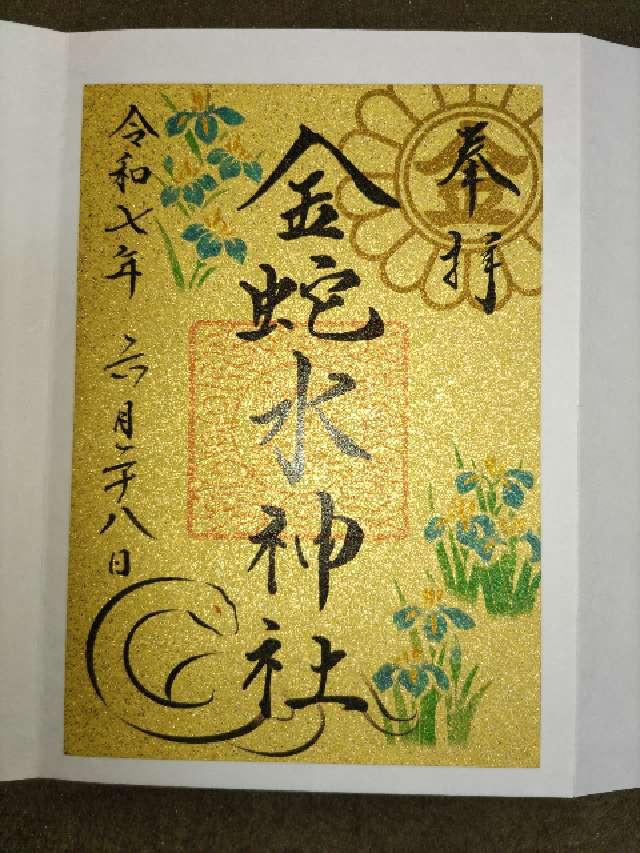 奉拝
金
金蛇水神社
令和七年 六月二十八日